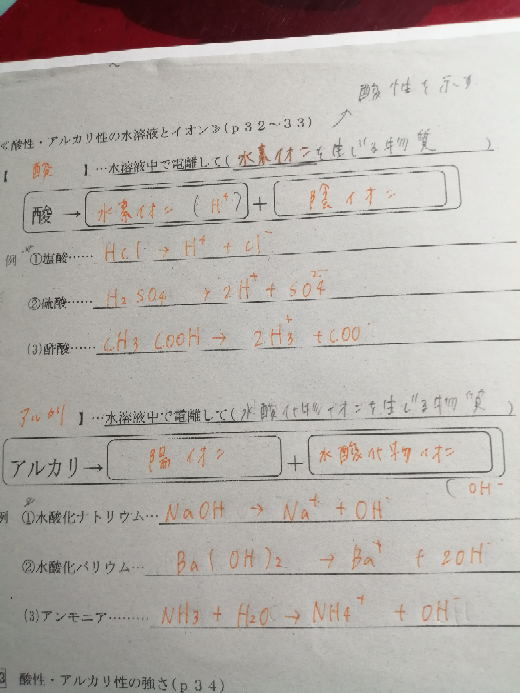 酸性を示す
≪酸性・アルカリ性の水溶液とイオン≫(p32～33)
【 酸 】…水溶液中で電離して(水素イオンを生じる物質)
酸 → 水素イオン (H⁺) + 陰イオン
例 ①塩酸…… HCl → H⁺ + Cl⁻
②硫酸…… H₂SO₄ → 2H⁺ + SO₄²⁻
(3)酢酸…… CH₃COOH → 2H₃⁺ + COO
アルカリ 】…水溶液中で電離して(水酸化物イオンを生じる物質)
アルカリ→ 陽イオン + 水酸化物イオン
(OH⁻
例 ①水酸化ナトリウム… NaOH → Na⁺ + OH⁻
②水酸化バリウム… Ba(OH)₂ → Ba⁺ + 2OH⁻
(3)アンモニア……… NH₃ + H₂O → NH₄⁺ + OH⁻
3 酸性・アルカリ性の強さ(p34)